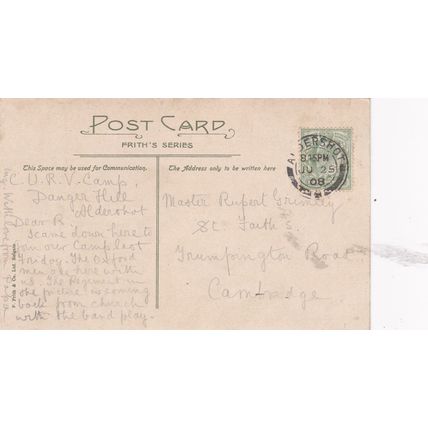 POST CARD
FRITH'S SERIES
This Space may be used for Communication.
The Address only to be written here
ALDERSHOT
8.15PM
JU 25
08
C.U.R.V. Camp.
Danger Hill
Aldershot
Dear R
I came down here to
join our Camp last
The Oxford
men are here with
us. The Regiment in
the picture is coming
back from church
with the band play-
Master Rupert
St. Faith's
Trumpington Road
Cambridge
F. Frith & Co. Ltd. Reigate